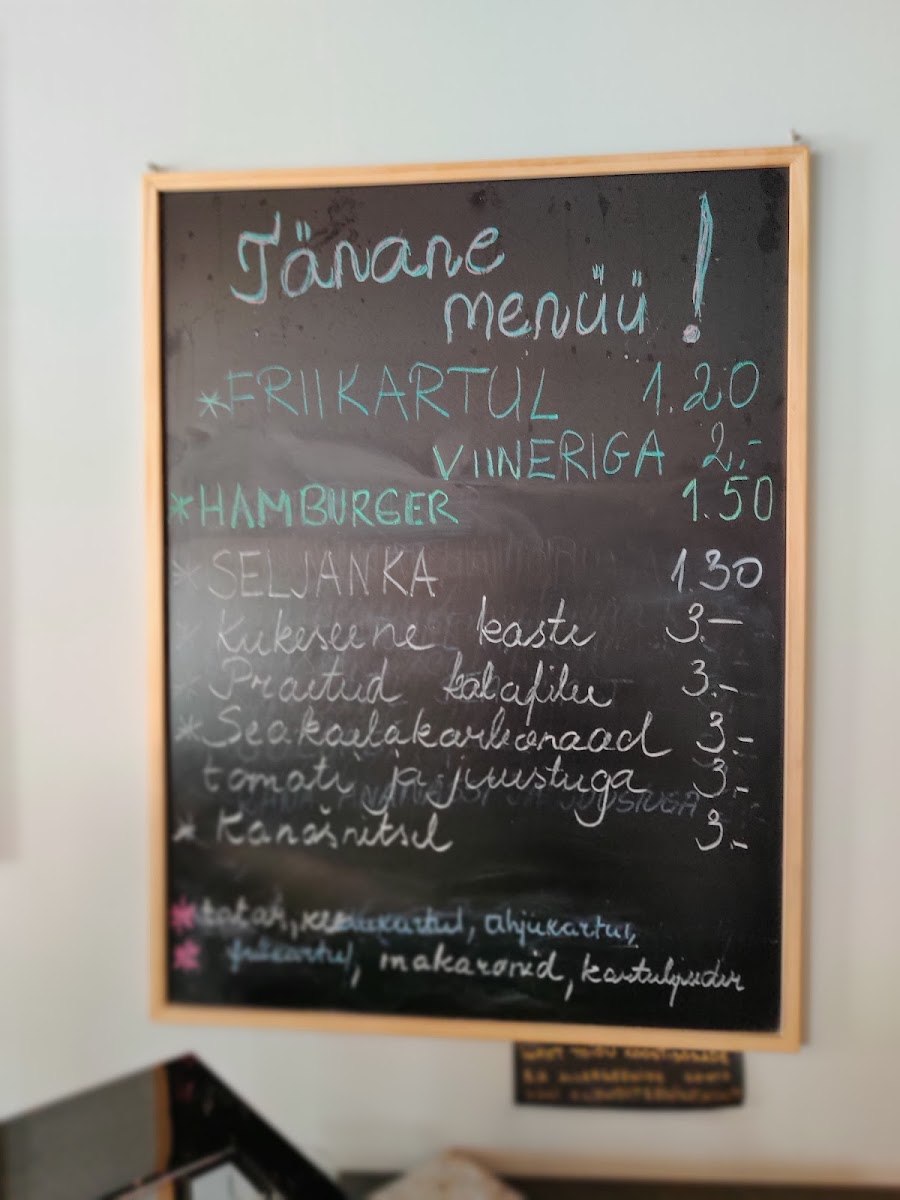 Tänane
menüü !
*FRIIKARTUL 1.20
VIINERIGA 2.-
*HAMBURGER 1.50
* SELJANKA 1.30
* Kukeseene kaste 3.-
* Praetud kalafilee 3.-
* Seakaelakarbonaad 3.-
tomati ja juustuga 3.-
* Kanašnitsel 3.-
* tatar, keedukartul, ahjukartul,
* friikartul, makaronid, kartulipuder